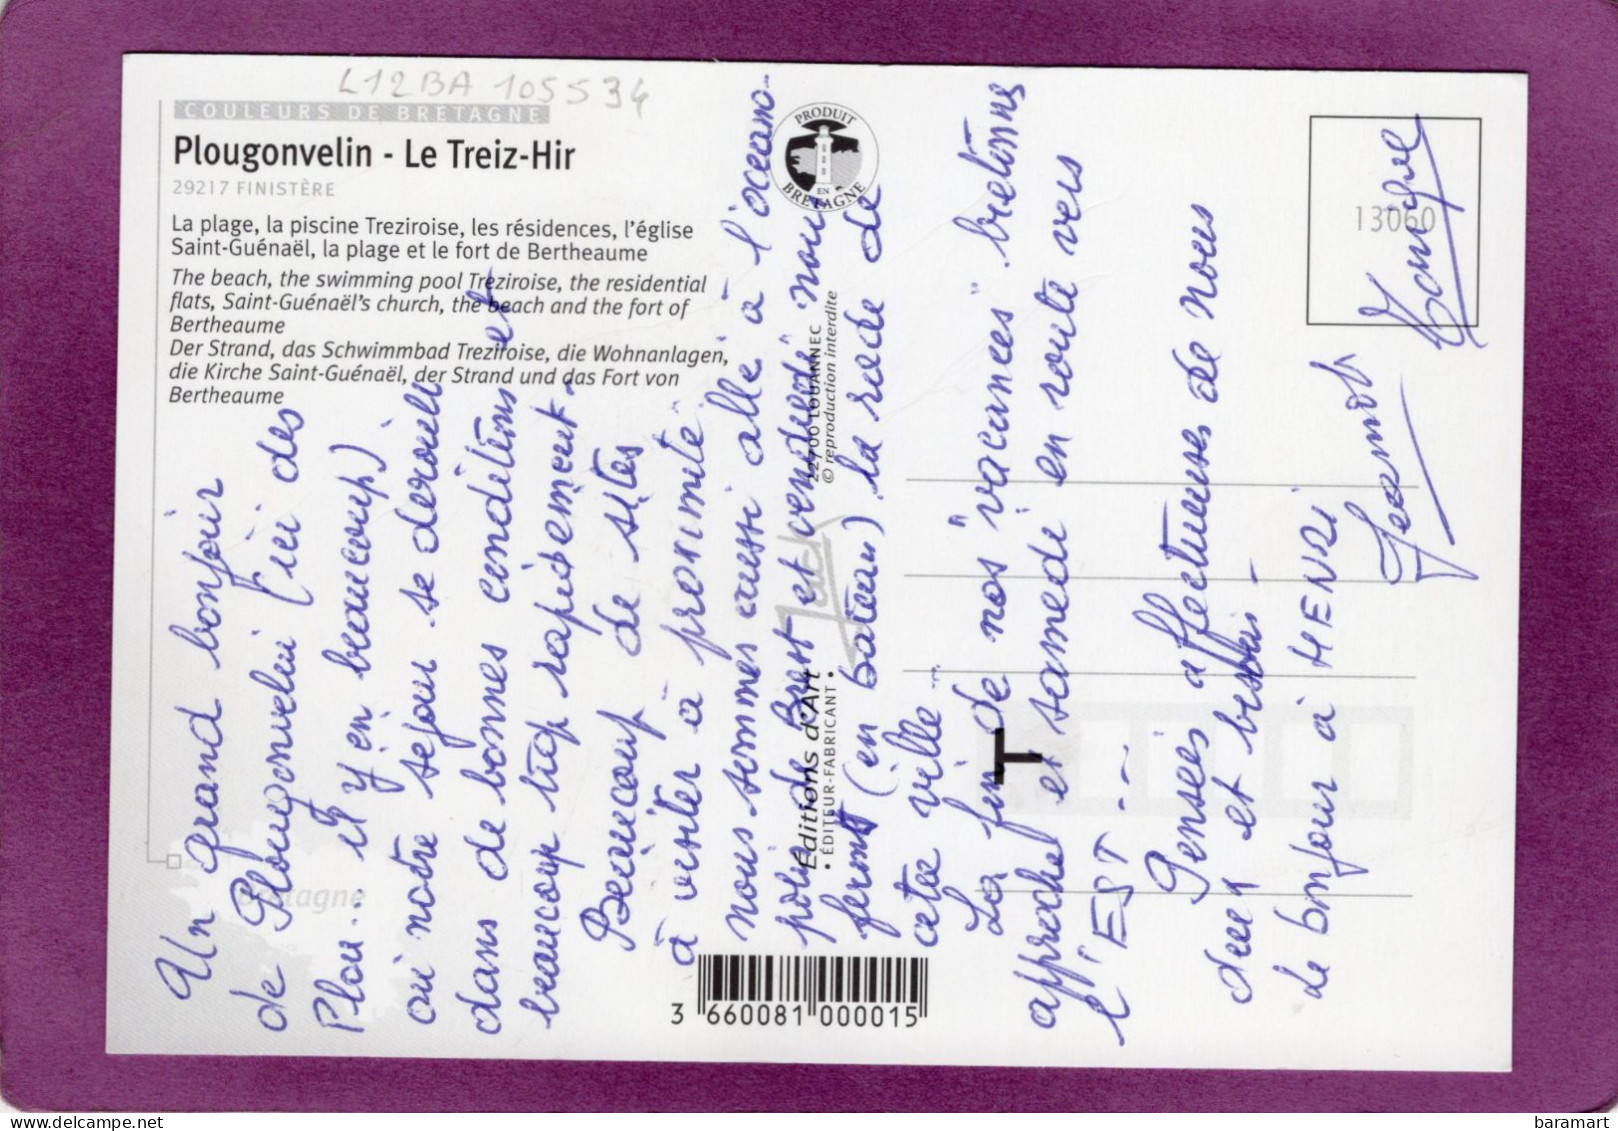 L12BA 105534
COULEURS DE BRETAGNE
Plougonvelin - Le Treiz-Hir
29217 FINISTÈRE
La plage, la piscine Treziroise, les résidences, l'église
Saint-Guénaël, la plage et le fort de Bertheaume
The beach, the swimming pool Treziroise, the residential
flats, Saint-Guénaël's church, the beach and the fort of
Bertheaume
Der Strand, das Schwimmbad Treziroise, die Wohnanlagen,
die Kirche Saint-Guénaël, der Strand und das Fort von
Bertheaume
Bretagne
PRODUIT
EN
BRETAGNE
13060
Éditions d'Art Jack
• ÉDITEUR-FABRICANT •
22700 LOUANNEC
© reproduction interdite
T
3 660081 000015
Un grand bonjour
de Plougonvelin (ici des
Plou.. il y en beaucoup)
où notre séjour se déroule
dans de bonnes conditions et
beaucoup trop rapidement.
Beaucoup de sites
à visiter à proximité
nous sommes aussi allé à l'océano-
polis de Brest et vendredi nous
ferons (en bateau) la rade de
cette ville -
La fin de nos "vacances" bretonne
approche et samedi en route vers
l'EST ---
Pensées affectueuses de nous
deux et bisous -
Le bonjour à HENRI
Jeannot
baramart